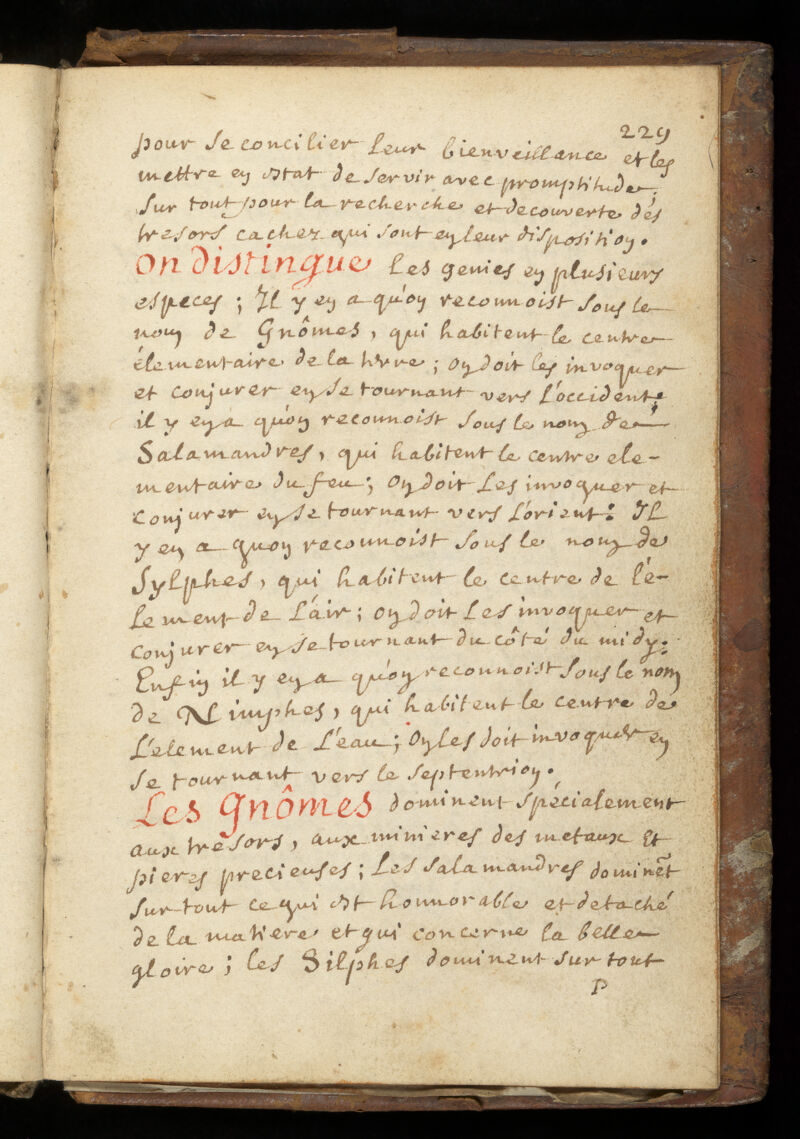 229
pour se concilier leur bienveillance et les
mettre en estat de servir avec promptitude,
sur tout pour la recherche et decouverte des
tresors cachez qui sont en leur disposition.
On distingue les genies en plusieurs
especes ; Il y en a qu'on reconnoist sous le
nom de Gnômes, qui habitent le centre
élementaire de la terre ; on doit les invoquer
et conjurer en se tournant vers l'occident,
il y en a qu'on reconnoist sous le nom de
Salamandres, qui habitent le centre ele-
mentaire du feu ; on doit les invoquer et
conjurer en se tournant vers l'orient : Il
y en a quon reconnoist sous le nom de
Sylphes, qui habitent le centre de l'é-
lement de l'air ; on doit les invoquer et
conjurer en se tournant du côté du midy :
Enfin il y en a qu'on reconnoist sous le nom
de Nimphes, qui habitent le centre de
l'element de l'eau ; on les doit invoquer en
se tournant vers le septentrion.
Les Gnômes dominent spécialement
aux tresors, aux minieres des metaux et
pieres precieuses ; les salamandres dominẽt
sur-tout ce qui est honnorable et detaché
de la matiere et qui concerne la belle
gloire ; les Silphes dominent sur tout
P